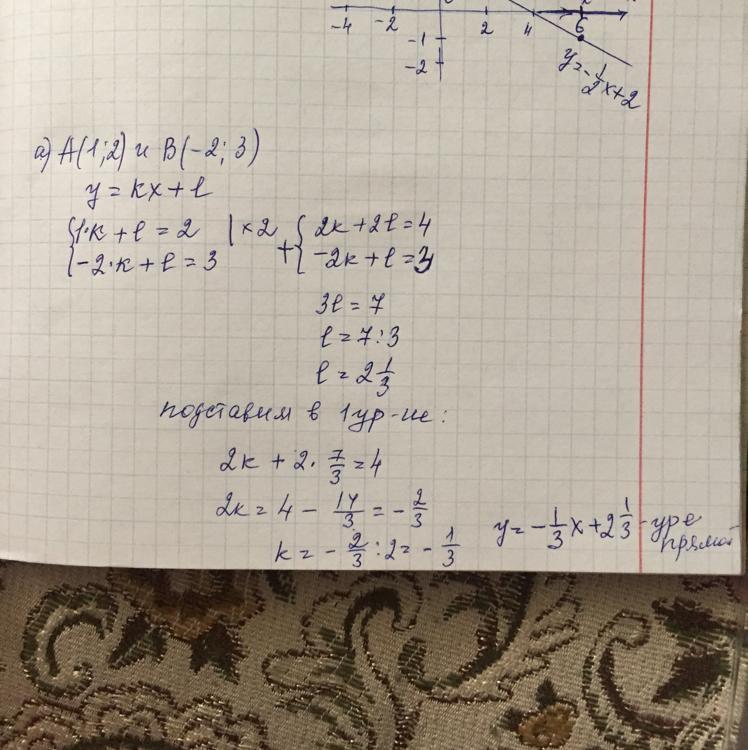 -4 -2 2 4 6
-1
-2
y=-1/2x+2
а) A(1;2) и B(-2;3)
y=kx+l
{1·k+l=2 |×2 + {2k+2l=4
{-2·k+l=3 {-2k+l=3
3l=7
l=7:3
l=2 1/3
подставим в 1ур-ие:
2k+2·7/3=4
2k=4-14/3=-2/3
k=-2/3:2=-1/3
y=-1/3x+2 1/3 - уре
прямой